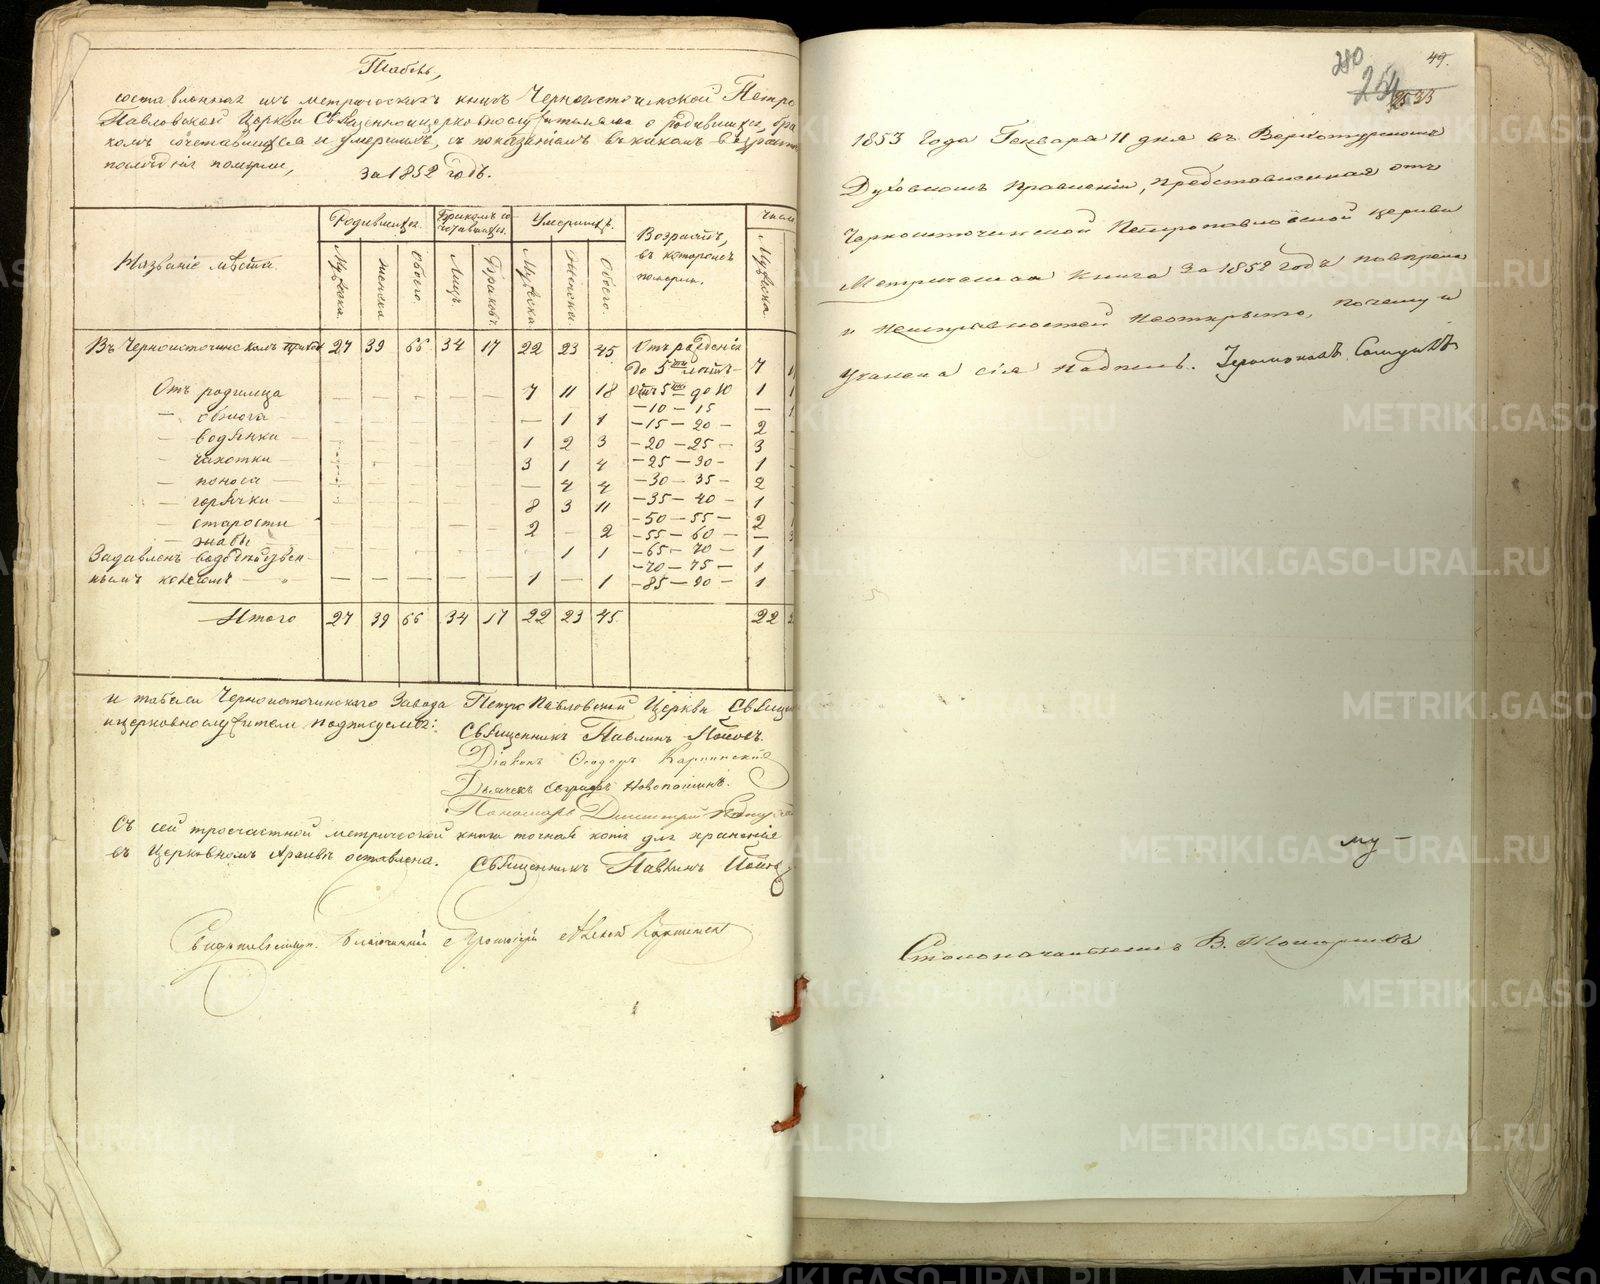 Табель,
составленная изъ метрическихъ книгъ Черноисточинской Петро
Павловской Церкви Священноцерковнослужителями о родившихся, бра
комъ сочетавшихся и умершихъ, съ показаніемъ въ какомъ возрастѣ
послѣдніе померли, за 1852 годъ.
Названіе мѣста. Родившихся. Бракомъ со- четавшихся. Умершихъ. Возрастъ, въ которомъ померли. Число
Мужеска. Женска. Обоего. Лицъ. Браковъ. Мужеска. Женска. Обоего. Мужеска
Въ Черноисточинскомъ приходѣ 27 39 66 34 17 22 23 45 Отъ рожденія
до 5ти лѣтъ 7
Отъ родимца — — — — — 7 11 18 Отъ 5ти до 10 1
— 10 — 15 —
— — 1 1 — 15 — 20 — 2
— водянки 1 2 3 — 20 — 25 — 3
— чахотки 3 1 4 — 25 — 30 — 1
— поноса — 4 4 — 30 — 35 — 2
— горячки 8 3 11 — 35 — 40 — 1
— старости 2 — 2 — 50 — 55 — 2
— жабы — 1 1 — 55 — 60 — —
Задавленъ — 65 — 70 — 1
— 70 — 75 — 1
нымъ колесомъ — — — — — 1 — 1 — 85 — 90 — 1
Итого 27 39 66 34 17 22 23 45 22
и табели Черноисточинскаго Завода Петро Павловской Церкви Священно
и церковнослужители подписуемся:
Священникъ Павлинъ Поповъ.
Діаконъ Ѳеодоръ Карпинскій
Дьячекъ Новопашинъ.
Пономарь Димитрій
Съ сей тросчастной метрической книги точная копія для храненія
въ Церковномъ Архивѣ оставлена.
Священникъ Павлинъ Поповъ
Свидѣтельствовалъ Благочинный Протоіерей Алексій Карпинскій
280
254
2535
49.
1853 Года Генваря 11 дня въ Верхотурскомъ
Духовномъ Правленіи, представленная отъ
Черноисточинской Петропавловской церкви
Метрическая Книга за 1852 годъ повѣрена
и неисправностей неоткрыто, почему и
учинена сія надпись. Іеромонахъ
Столоначальникъ В. Топорковъ
METRIKI.GASO-URAL.RU